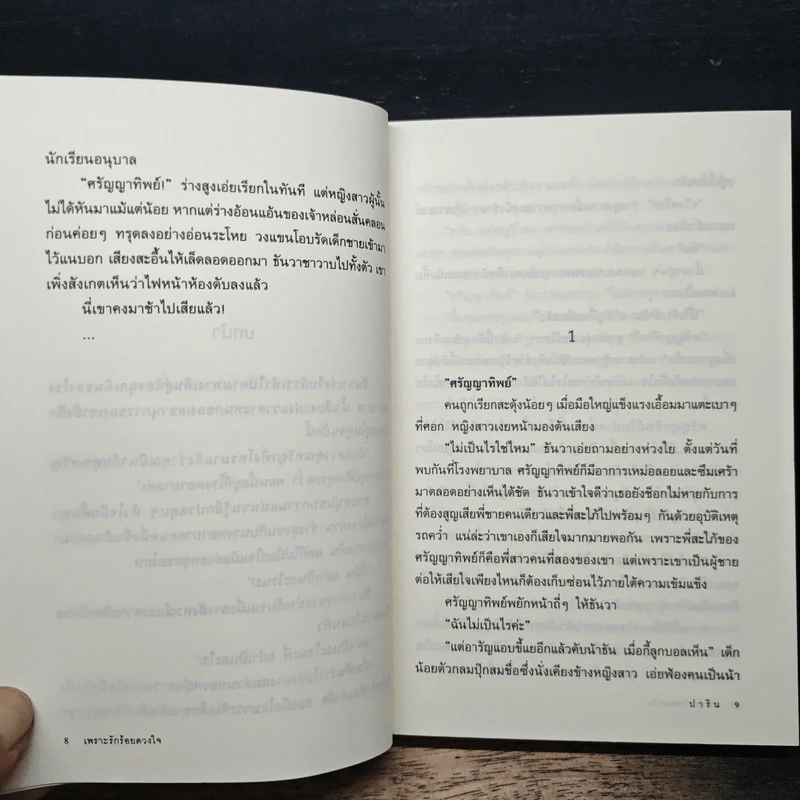 นักเรียนอนุบาล
“ศรัญญาทิพย์!” ร่างสูงเอ่ยเรียกในทันที แต่หญิงสาวผู้นั้น
ไม่ได้หันมาแม้แต่น้อย หากแต่ร่างอ้อนแอ้นของเจ้าหล่อนสั่นคลอน
ก่อนค่อยๆ ทรุดลงอย่างอ่อนระโหย วงแขนโอบรัดเด็กชายเข้ามา
ไว้แนบอก เสียงสะอื้นไห้เล็ดลอดออกมา ธันวาชาวาบไปทั้งตัว เขา
เพิ่งสังเกตเห็นว่าไฟหน้าห้องดับลงแล้ว
นี่เขาคงมาช้าไปเสียแล้ว!
...
8 เพราะรักร้อยดวงใจ
1
“ศรัญญาทิพย์”
คนถูกเรียกสะดุ้งน้อยๆ เมื่อมือใหญ่แข็งแรงเอื้อมมาแตะเบาๆ
ที่ศอก หญิงสาวเงยหน้ามองต้นเสียง
“ไม่เป็นไรใช่ไหม” ธันวาเอ่ยถามอย่างห่วงใย ตั้งแต่วันที่
พบกันที่โรงพยาบาล ศรัญญาทิพย์ก็มีอาการเหม่อลอยและซึมเศร้า
มาตลอดอย่างเห็นได้ชัด ธันวาเข้าใจดีว่าเธอยังช็อกไม่หายกับการ
ที่ต้องสูญเสียพี่ชายคนเดียวและพี่สะใภ้ไปพร้อมๆ กันด้วยอุบัติเหตุ
รถคว่ำ แน่ล่ะว่าเขาเองก็เสียใจมากมายพอกัน เพราะพี่สะใภ้ของ
ศรัญญาทิพย์ก็คือพี่สาวคนที่สองของเขา แต่เพราะเขาเป็นผู้ชาย
ต่อให้เสียใจเพียงไหนก็ต้องเก็บซ่อนไว้ภายใต้ความเข้มแข็ง
ศรัญญาทิพย์พยักหน้าถี่ๆ ให้ธันวา
“ฉันไม่เป็นไรค่ะ”
“แต่อารัญแอบขี้แยอีกแล้วคับน้าธัน เมื่อกี้ลูกบอลเห็น” เด็ก
น้อยตัวกลมปุ๊กสมชื่อซึ่งนั่งเคียงข้างหญิงสาว เอ่ยฟ้องคนเป็นน้า
ปาริน 9